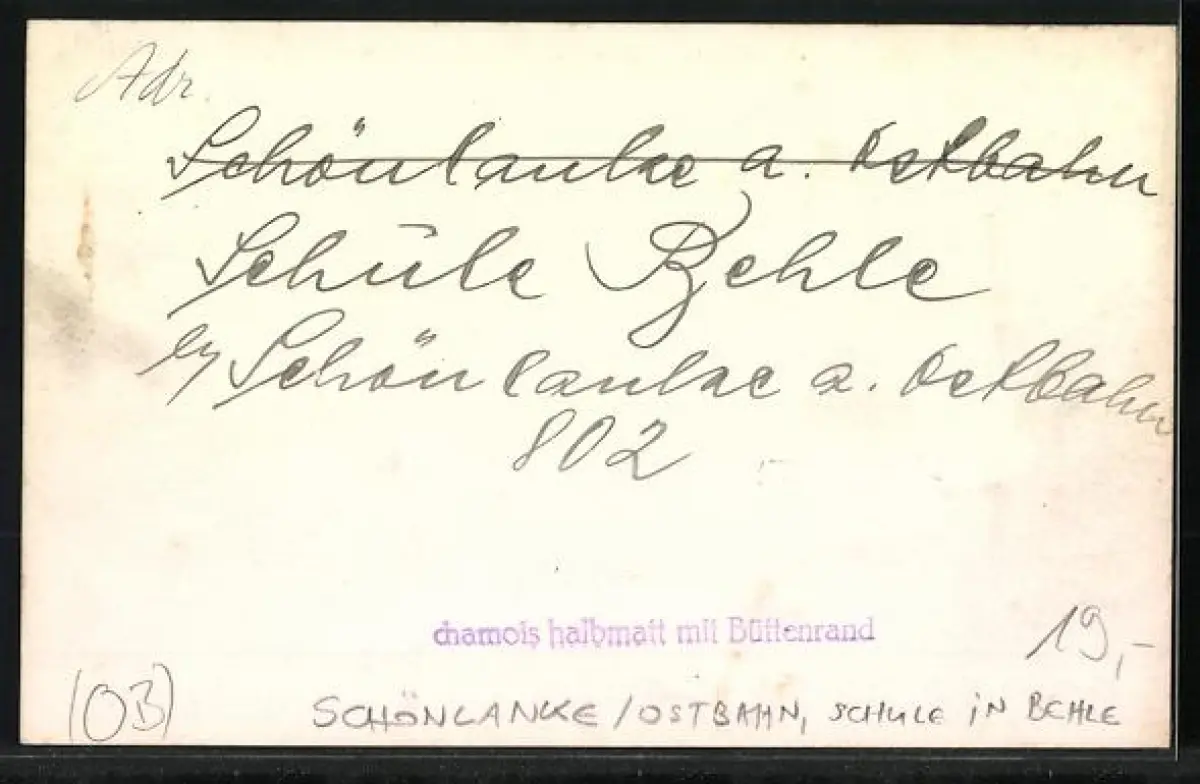 Adr.
Schönlanke a. Ostbahn
Schule Behle
b/ Schönlanke a. Ostbahn
802
chamois halbmatt mit Büttenrand
19,-
(OB)
SCHÖNLANKE / OSTBAHN, SCHULE IN BEHLE